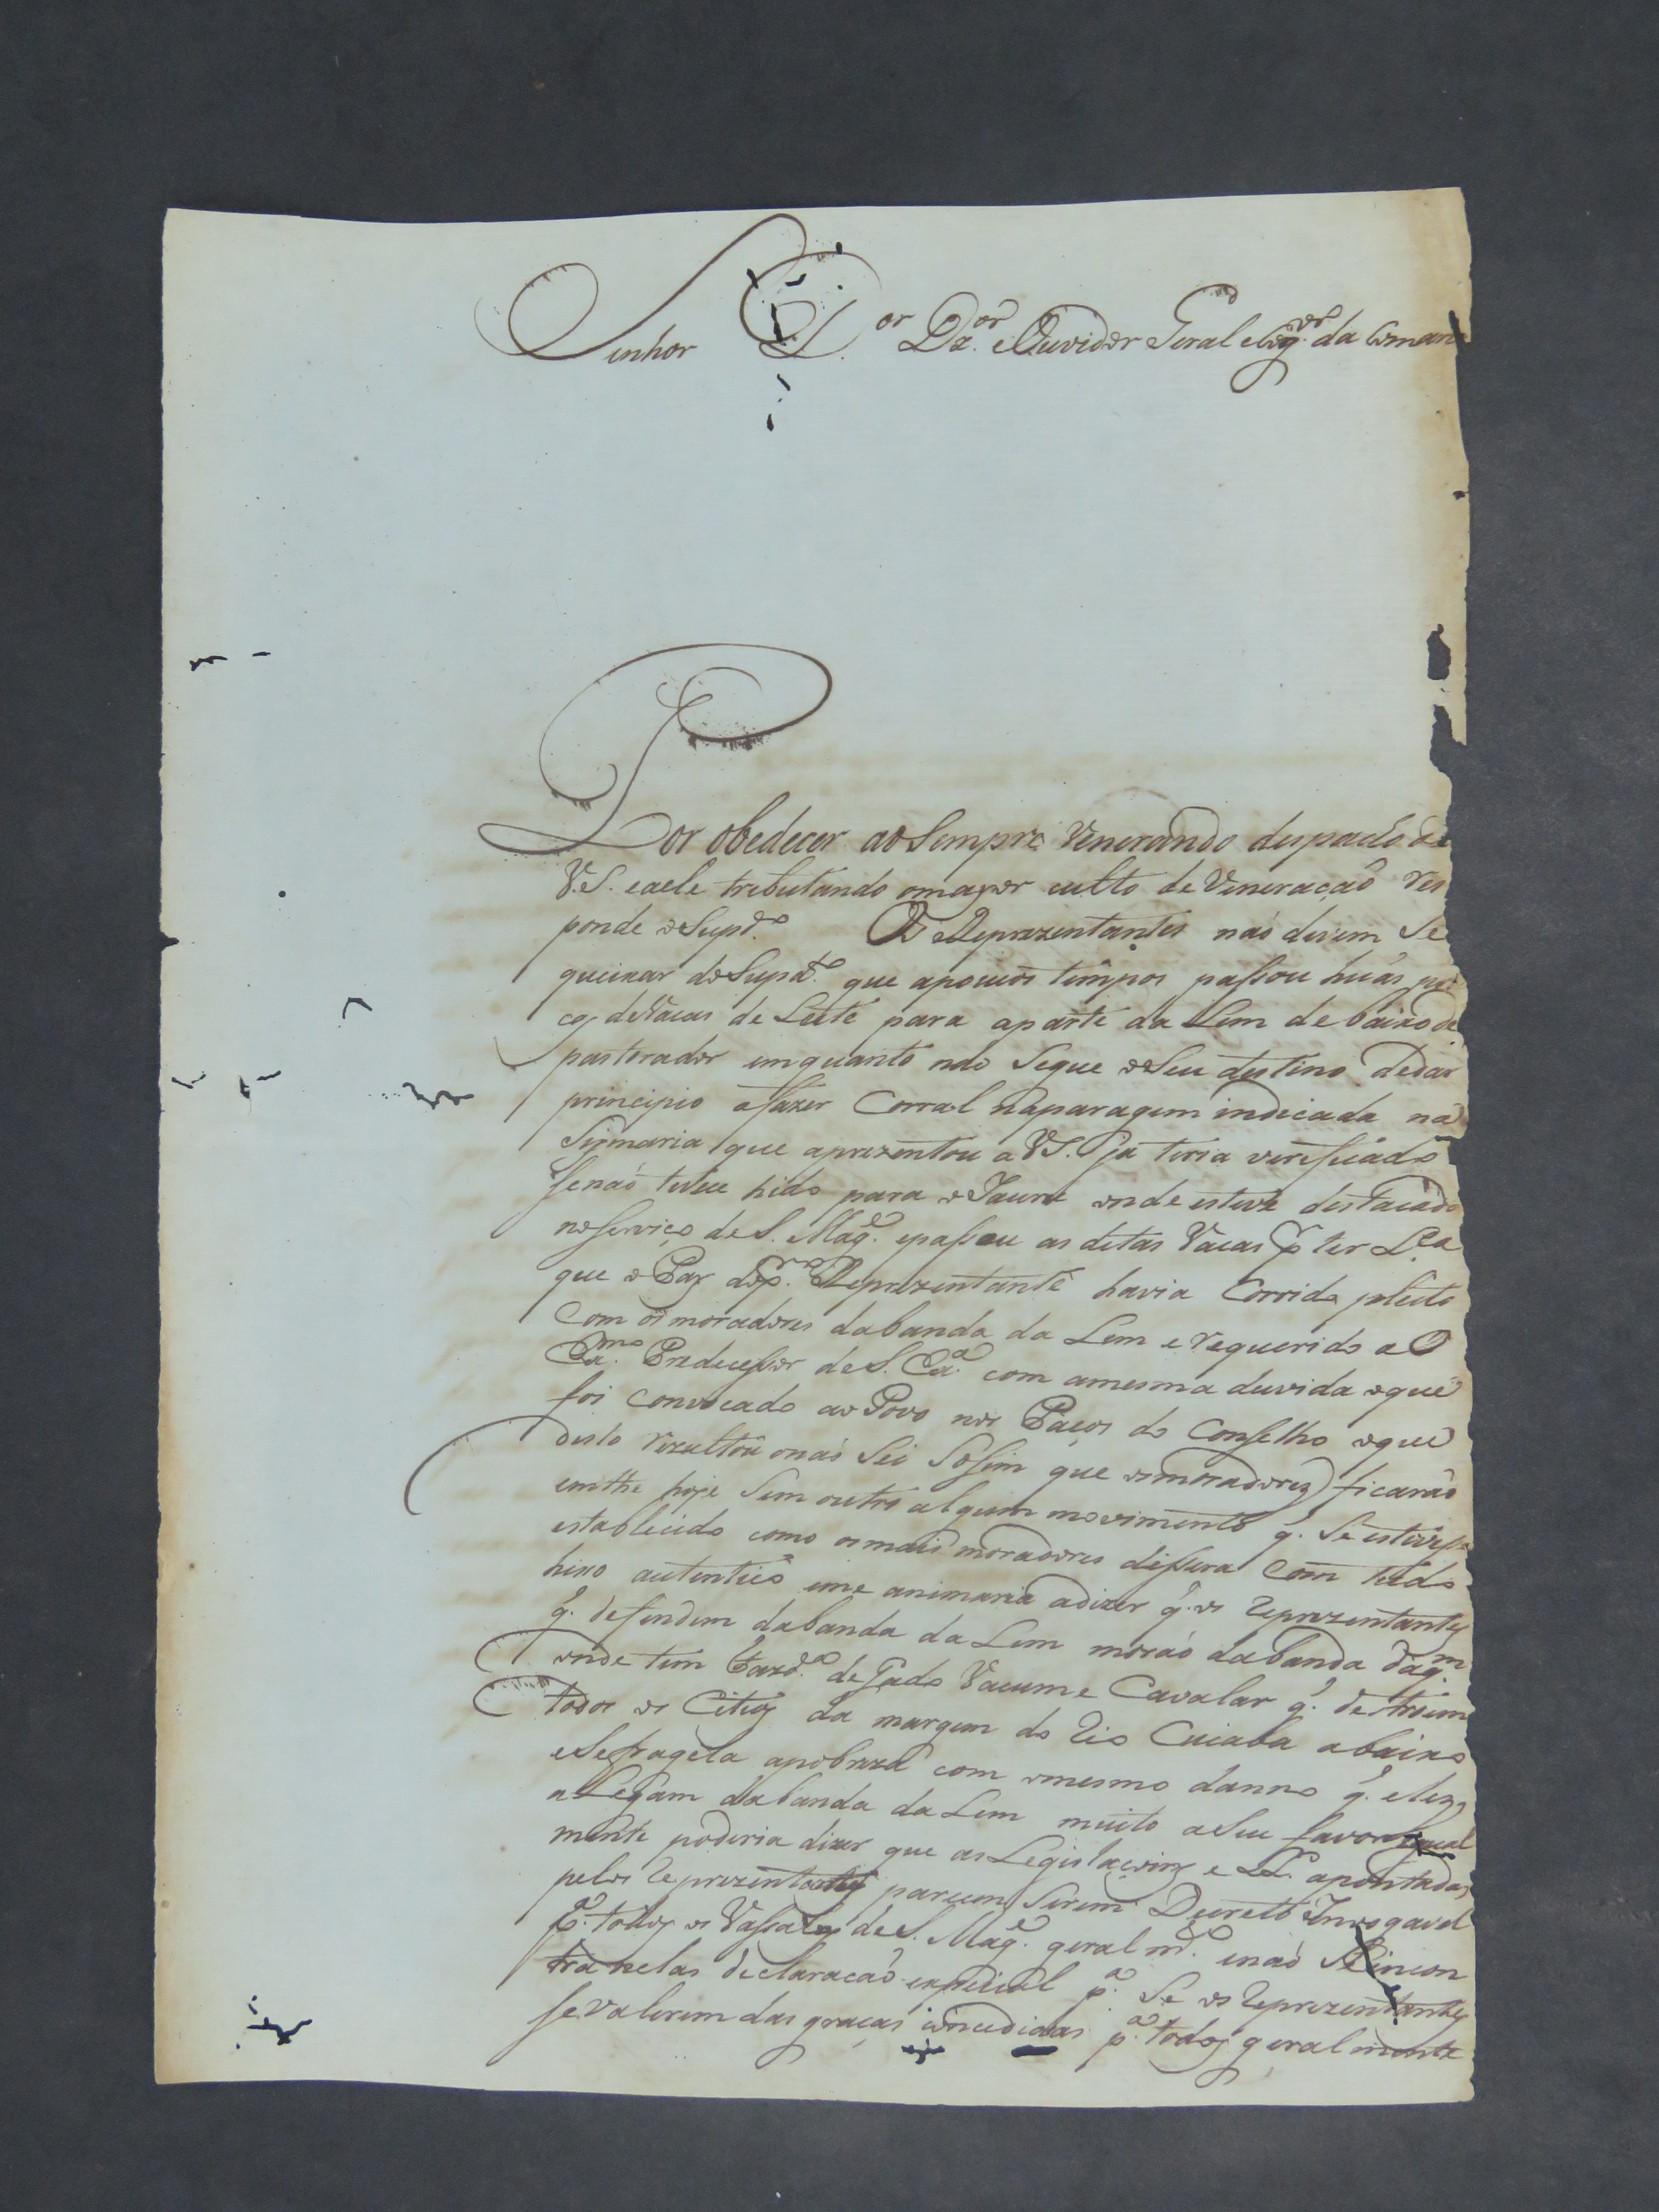 Senhor D.or Dr. e Ouvidor Geral e Corg.or da Comarc
Por obedecer ao Sempre Venerando despacho de
V.S. e a ele tributando o mayor culto de Veneração res
ponde o Supd.o Os Reprezentantes não devem Se
queixar do Supd.o que a poucos tempos passou huas po
cas de Vacas de Leite para a parte da Lem debaixo de
pastorador emquanto não Segue o Seu destino de dar
principio a fazer Corral na paragem indicada na
Sismaria que aprezentou a VS. já teria verificado
se não tivece hido para o Jauru onde esteve destacado
no serviço de S. Mag.e e passou as ditas Vacas p.r ter L.ca
que o Pay do p.ro Reprezentante havia Corrido pleito
com os moradores da banda da Lem e requerido a O
Ex.mo Predecessor de S. Ex.a com a mesma duvida o que
foi convocado ao Povo nos Paços do Conselho o que
disto rezultou o não Sei Só sim que os moradores ficarão
em the hoje Sem outro algum movimento q. Se estivesse
establecido como os mais moradores dissera Com tudo
hixo autentico e me animaria a dizer q. os reprezentantes
q. defendem da banda da Lem morão da banda daq.m
onde tem Fazd.a de Gado Vacum e Cavalar q. destroim
todos os Citios da margem do Rio Cuiaba abaixo
e Se fragela a pobreza com o mesmo danno q. eles
alegam da banda da Lem muito a Seu favor igual
mente poderia dizer que as Legislaçoins e LL. apontadas
pelos reprezentantes parecem Serem Decreto Inrogavel
p.a todos os Vassalos de S. Mag.e geral m.e e não Se incon
tra nelas declaração especial p.a Se os reprezentantes
se valerem das graças concedidas p.a todos geralmente